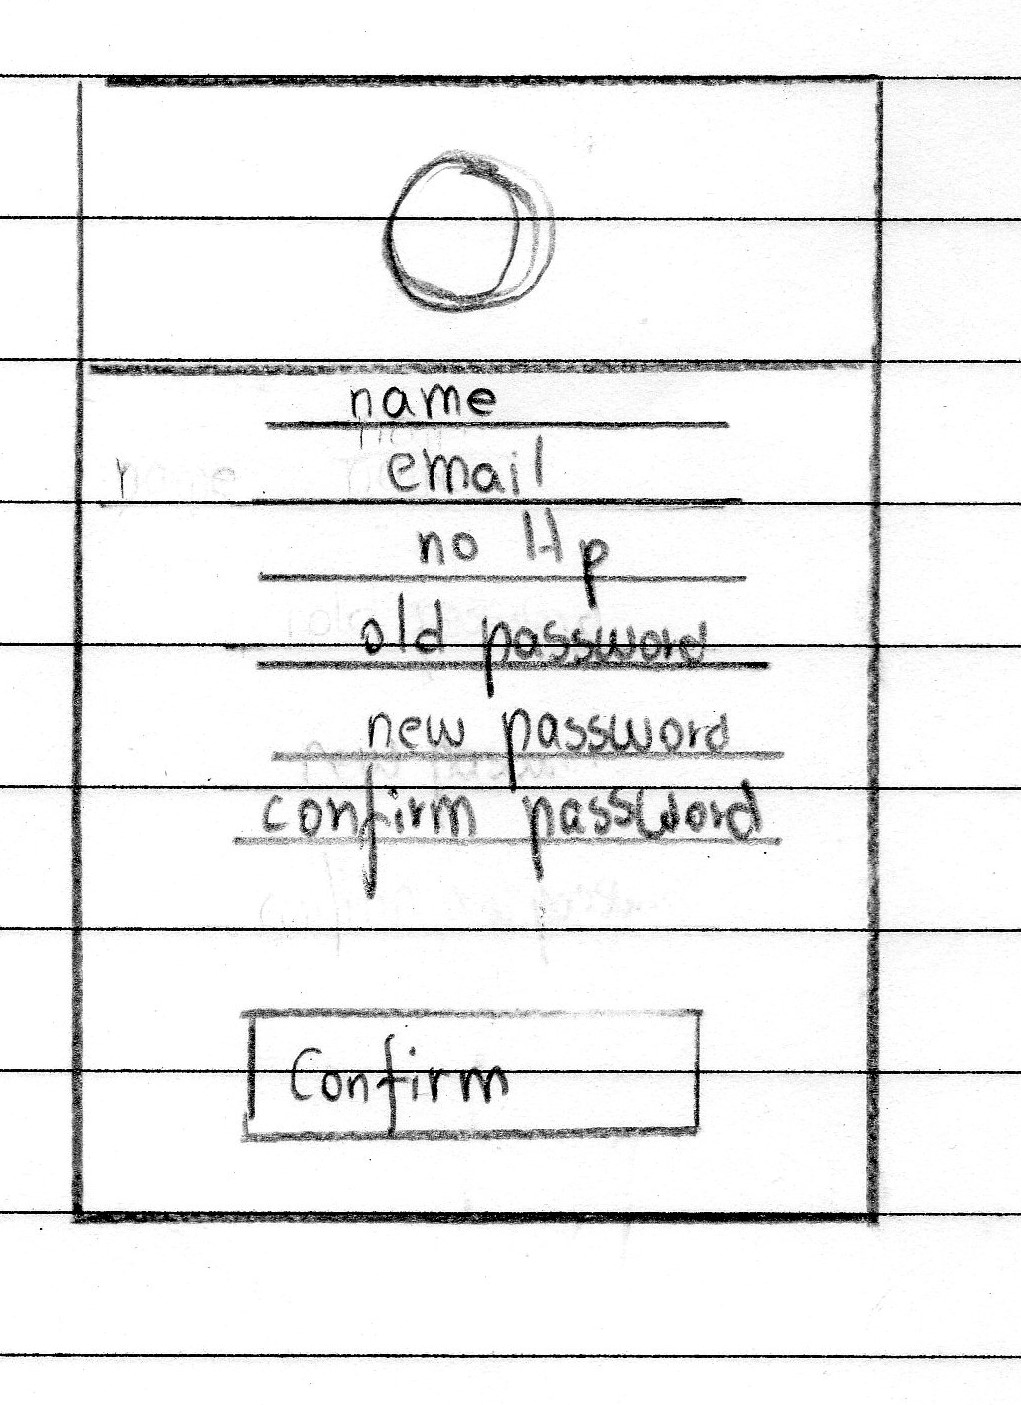 name
email
no Hp
old password
new password
confirm password
Confirm